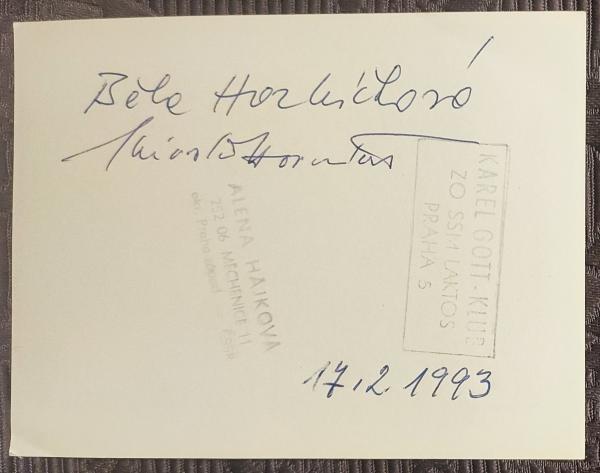 Běla Horníčková
ALENA HAJKOVA
252 06 MECHENICE 11
okr. Praha západ
ČSSR
KAREL GOTT-KLUB
ZO SSM LAKTOS
PRAHA 5
17.2.1993